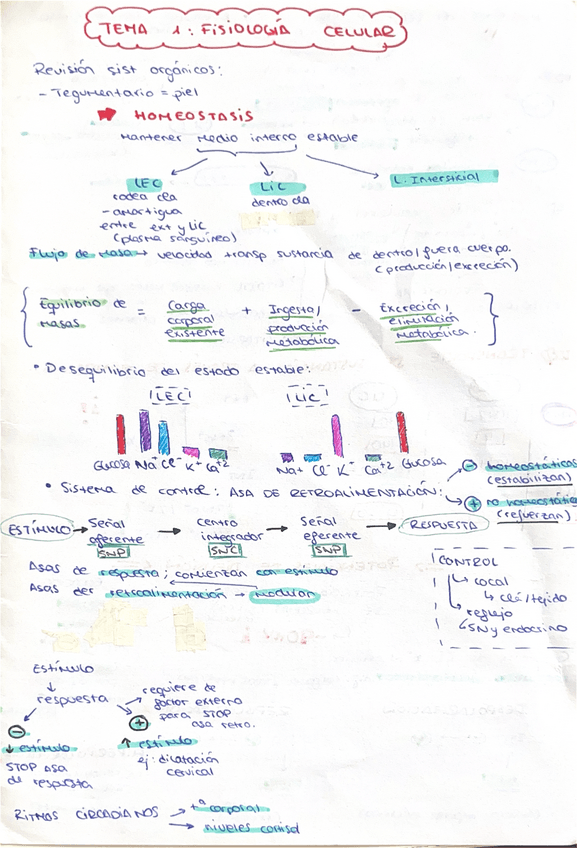 TEMA 1: FISIOLOGÍA CELULAR
Revisión sist orgánicos:
- Tegumentario = piel
HOMEOSTASIS
Mantener medio interno estable
LEC
rodea cla
- amortigua
entre ext y LIC
(plasma sanguíneo)
LIC
dentro cla
L. Intersticial
Flujo de masa → velocidad transp sustancia de dentro/fuera cuerpo.
(producción/excreción)
Equilibrio de masas = Carga corporal existente + Ingesta/producción metabólica - Excreción/eliminación metabólica.
• Desequilibrio del estado estable:
LEC
LIC
Glucosa Na+ Cl- K+ Ca+2
Na+ Cl- K- Ca+2 Glucosa
• Sistema de control: ASA DE RETROALIMENTACIÓN:
- homeostáticas
(estabilizan)
+ no homeostática
(refuerzan)
ESTÍMULO → Señal aferente → centro integrador → Señal eferente → RESPUESTA
SNP
SNC
SNP
Asas de respuesta; comienzan con estímulo
Asas der retroalimentación → modulan
CONTROL
local
↳ clá/tejido
reflejo
↳ SN y endocrino
Estímulo
↓
respuesta
-
↓ estímulo
STOP asa
de respuesta
→ requiere de
factor externo
para STOP
asa retro.
+
↑ estímulo
ej: dilatación
cervical
RITMOS CIRCADIANOS → tª corporal
→ niveles cortisol